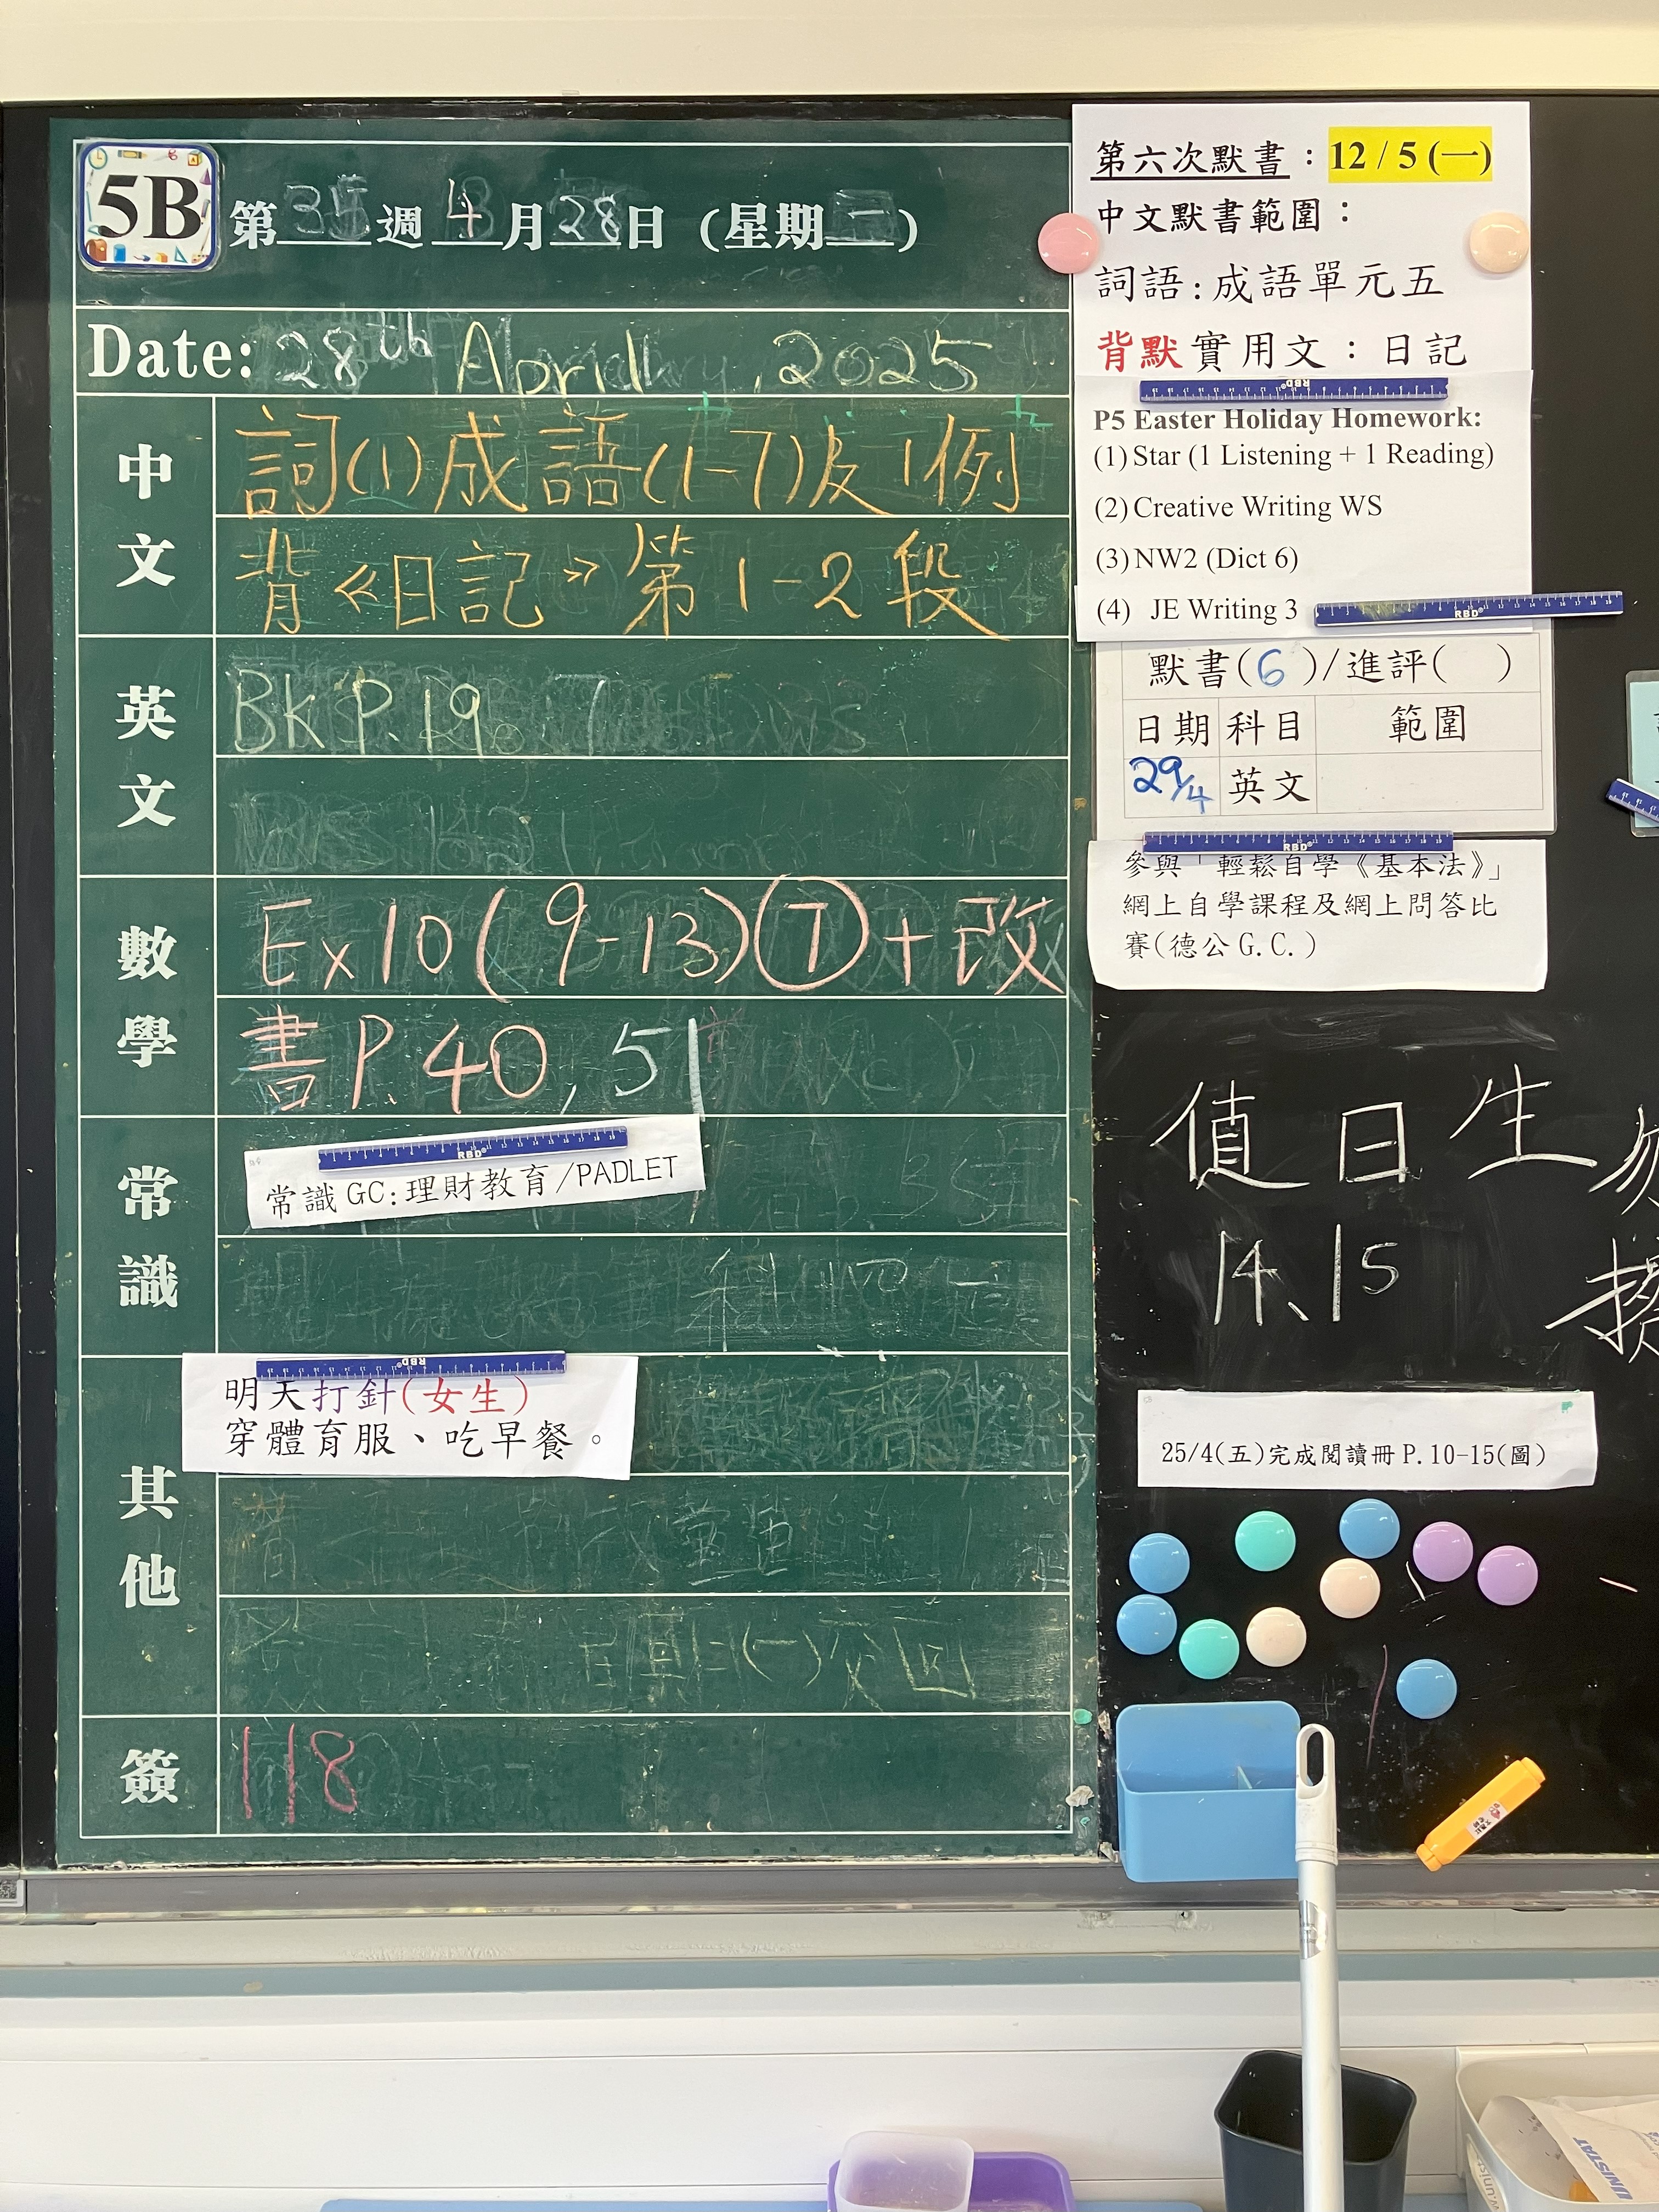 5B
第35週 4月28日 (星期二)
Date: 28th April, 2025
中文
詞(1)成語(1-7)及1例
背《日記》第1-2段
英文
BK P.19。
數學
Ex10(9-13)⑦+改
書P.40,51
常識
常識 GC:理財教育/PADLET
其他
明天打針(女生)
穿體育服、吃早餐。
簽
118
第六次默書:12/5(一)
中文默書範圍:
詞語:成語單元五
背默實用文:日記
P5 Easter Holiday Homework:
(1) Star (1 Listening + 1 Reading)
(2) Creative Writing WS
(3) NW2 (Dict 6)
(4) JE Writing 3
默書(6)/進評( )
日期 科目 範圍
29/4 英文
參與「輕鬆自學《基本法》」
網上自學課程及網上問答比
賽(德公G.C.)
值日生
14、15
25/4(五)完成閱讀冊P.10-15(圖)
RBD
RBD
RBD
RBD
RBD
UNISTAT